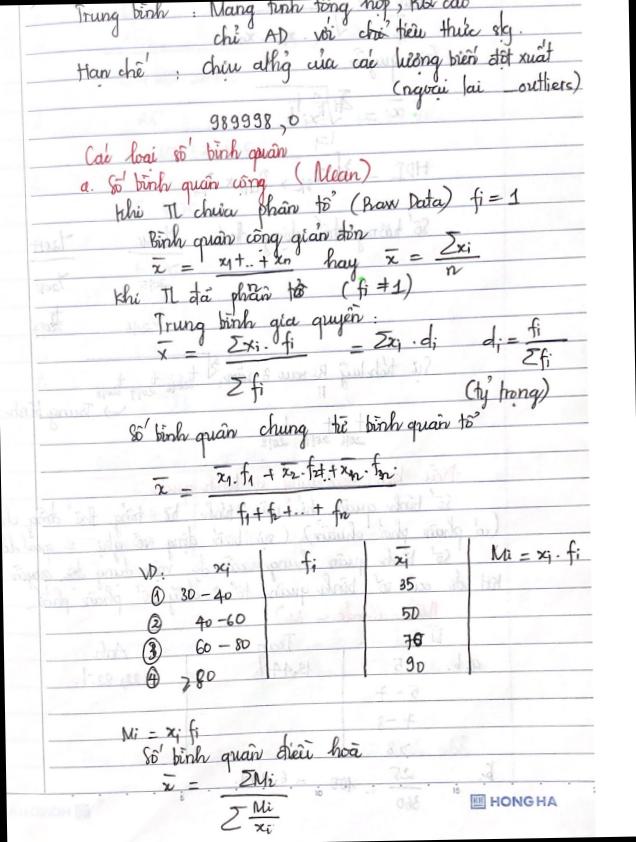 Trung bình : Mang tính tổng hợp, khái
chỉ AD với chỉ tiêu thức slg.
Hạn chế : chịu ahg của các lượng biến đột xuất
(ngoại lai _outliers)
989998,0
Các loại số bình quân
a. Số bình quân cộng (Mean)
Khi TL chưa phân tổ (Raw Data) fi = 1
Bình quân cộng giản đơn
x̄ = (x1+..+xn)/n hay x̄ = Σxi/n
Khi TL đã phân tổ (fi ≠ 1)
Trung bình gia quyền :
x̄ = Σxi.fi / Σfi = Σxi.di di = fi/Σfi
(tỷ trọng)
Số bình quân chung từ bình quân tổ
x̄ = (x̄1.f1 + x̄2.f2+..+x̄n.fn) / (f1+f2+..+fn)
VD: xi fi x̄i Mi = xi.fi
① 30-40 35
② 40-60 50
③ 60-80 70
④ >80 90
Mi = xi fi
Số bình quân điều hoà
x̄ = ΣMi / Σ(Mi/xi)
HONG HA